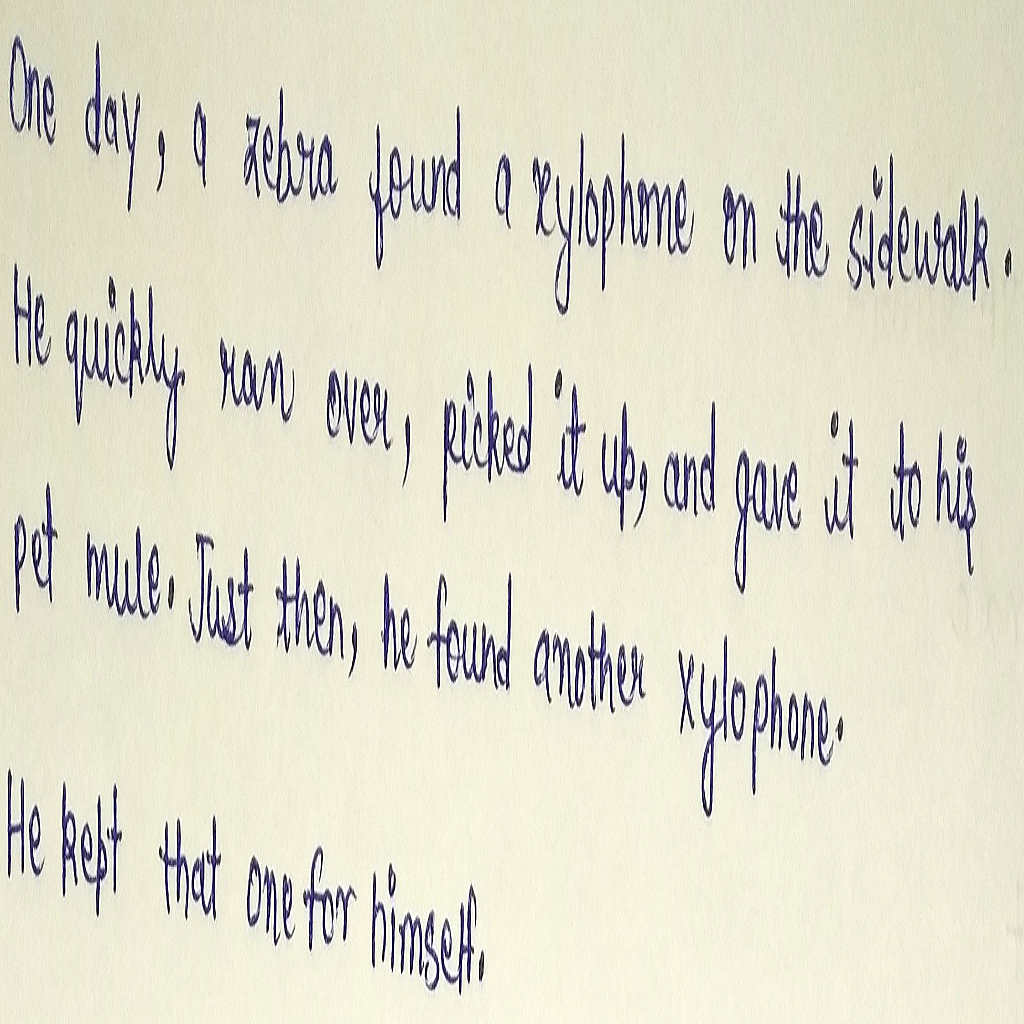 One day, a zebra found a xylophone on the sidewalk.
He quickly ran over, picked it up, and gave it to his
pet mule. Just then, he found another xylophone.
He kept that one for himself.